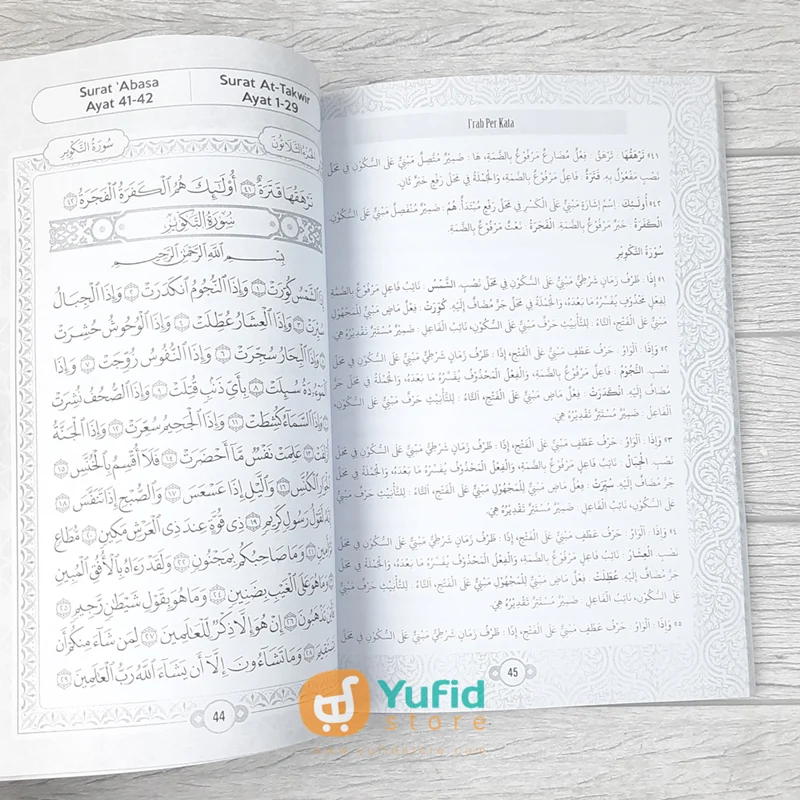 Surat 'Abasa
Ayat 41-42
Surat At-Takwir
Ayat 1-29
سُورَةُ التَّكْوِيرِ
الجُزْءُ الثَّلَاثُونَ
تَرْهَقُهَا قَتَرَةٌ ٤١ أُوْلَٰٓئِكَ هُمُ ٱلْكَفَرَةُ ٱلْفَجَرَةُ ٤٢
سُورَةُ التَّكْوِيرِ
بِسْمِ ٱللَّهِ ٱلرَّحْمَٰنِ ٱلرَّحِيمِ
إِذَا ٱلشَّمْسُ كُوِّرَتْ ١ وَإِذَا ٱلنُّجُومُ ٱنكَدَرَتْ ٢ وَإِذَا ٱلْجِبَالُ
سُيِّرَتْ ٣ وَإِذَا ٱلْعِشَارُ عُطِّلَتْ ٤ وَإِذَا ٱلْوُحُوشُ حُشِرَتْ
٥ وَإِذَا ٱلْبِحَارُ سُجِّرَتْ ٦ وَإِذَا ٱلنُّفُوسُ زُوِّجَتْ ٧ وَإِذَا
ٱلْمَوْءُۥدَةُ سُئِلَتْ ٨ بِأَيِّ ذَنۢبٍ قُتِلَتْ ٩ وَإِذَا ٱلصُّحُفُ نُشِرَتْ
١٠ وَإِذَا ٱلسَّمَآءُ كُشِطَتْ ١١ وَإِذَا ٱلْجَحِيمُ سُعِّرَتْ ١٢ وَإِذَا ٱلْجَنَّةُ
أُزْلِفَتْ ١٣ عَلِمَتْ نَفْسٌ مَّآ أَحْضَرَتْ ١٤ فَلَآ أُقْسِمُ بِٱلْخُنَّسِ ١٥
ٱلْجَوَارِ ٱلْكُنَّسِ ١٦ وَٱلَّيْلِ إِذَا عَسْعَسَ ١٧ وَٱلصُّبْحِ إِذَا تَنَفَّسَ ١٨
إِنَّهُۥ لَقَوْلُ رَسُولٍ كَرِيمٍ ١٩ ذِي قُوَّةٍ عِندَ ذِي ٱلْعَرْشِ مَكِينٍ ٢٠ مُّطَاعٍ
ثَمَّ أَمِينٍ ٢١ وَمَا صَاحِبُكُم بِمَجْنُونٍ ٢٢ وَلَقَدْ رَءَاهُ بِٱلْأُفُقِ ٱلْمُبِينِ
٢٣ وَمَا هُوَ عَلَى ٱلْغَيْبِ بِضَنِينٍ ٢٤ وَمَا هُوَ بِقَوْلِ شَيْطَٰنٍ رَّجِيمٍ ٢٥
فَأَيْنَ تَذْهَبُونَ ٢٦ إِنْ هُوَ إِلَّا ذِكْرٌ لِّلْعَٰلَمِينَ ٢٧ لِمَن شَآءَ مِنكُمْ أَن
يَسْتَقِيمَ ٢٨ وَمَا تَشَآءُونَ إِلَّآ أَن يَشَآءَ ٱللَّهُ رَبُّ ٱلْعَٰلَمِينَ ٢٩
44
I'rab Per Kata
٤١) تَرْهَقُهَا : تَرْهَقُ : فِعْلٌ مُضَارِعٌ مَرْفُوْعٌ بِالضَّمَّةِ، هَا : ضَمِيْرٌ مُتَّصِلٌ مَبْنِيٌّ عَلَى السُّكُوْنِ فِي مَحَلِّ
نَصْبٍ مَفْعُوْلٌ بِهِ. قَتَرَةٌ : فَاعِلٌ مَرْفُوْعٌ بِالضَّمَّةِ، وَالْجُمْلَةُ فِي مَحَلِّ رَفْعٍ خَبَرٌ ثَانٍ.
٤٢) أُولَـئِكَ : اِسْمُ إِشَارَةٍ مَبْنِيٌّ عَلَى الْكَسْرِ فِي مَحَلِّ رَفْعٍ مُبْتَدَأٌ. هُمُ : ضَمِيْرٌ مُنْفَصِلٌ مَبْنِيٌّ عَلَى السُّكُوْنِ.
الْكَفَرَةُ : خَبَرٌ مَرْفُوْعٌ بِالضَّمَّةِ. الْفَجَرَةُ : نَعْتٌ مَرْفُوْعٌ بِالضَّمَّةِ.
سُوْرَةُ التَّكْوِيْرِ
١) إِذَا : ظَرْفُ زَمَانٍ شَرْطِيٌّ مَبْنِيٌّ عَلَى السُّكُوْنِ فِي مَحَلِّ نَصْبٍ. الشَّمْسُ : نَائِبُ فَاعِلٍ مَرْفُوْعٌ بِالضَّمَّةِ
لِفِعْلٍ مَحْذُوْفٍ يُفَسِّرُهُ مَا بَعْدَهُ، وَالْجُمْلَةُ فِي مَحَلِّ جَرٍّ مُضَافٌ إِلَيْهِ. كُوِّرَتْ : فِعْلٌ مَاضٍ مَبْنِيٌّ لِلْمَجْهُوْلِ
مَبْنِيٌّ عَلَى الْفَتْحِ، اَلتَّاءُ : لِلتَّأْنِيْثِ حَرْفٌ مَبْنِيٌّ عَلَى السُّكُوْنِ، نَائِبُ الْفَاعِلِ : ضَمِيْرٌ مُسْتَتِرٌ تَقْدِيْرُهُ هِيَ.
٢) وَإِذَا : اَلْوَاوُ : حَرْفُ عَطْفٍ مَبْنِيٌّ عَلَى الْفَتْحِ، إِذَا : ظَرْفُ زَمَانٍ شَرْطِيٌّ مَبْنِيٌّ عَلَى السُّكُوْنِ فِي مَحَلِّ
نَصْبٍ. النُّجُوْمُ : فَاعِلٌ مَرْفُوْعٌ بِالضَّمَّةِ، وَالْفِعْلُ الْمَحْذُوْفُ يُفَسِّرُهُ مَا بَعْدَهُ، وَالْجُمْلَةُ فِي مَحَلِّ جَرٍّ
مُضَافٌ إِلَيْهِ. انْكَدَرَتْ : فِعْلٌ مَاضٍ مَبْنِيٌّ عَلَى الْفَتْحِ، اَلتَّاءُ : لِلتَّأْنِيْثِ حَرْفٌ مَبْنِيٌّ عَلَى السُّكُوْنِ،
الْفَاعِلُ : ضَمِيْرٌ مُسْتَتِرٌ تَقْدِيْرُهُ هِيَ.
٣) وَإِذَا : اَلْوَاوُ : حَرْفُ عَطْفٍ مَبْنِيٌّ عَلَى الْفَتْحِ، إِذَا : ظَرْفُ زَمَانٍ شَرْطِيٌّ مَبْنِيٌّ عَلَى السُّكُوْنِ فِي مَحَلِّ
نَصْبٍ. الْجِبَالُ : نَائِبُ فَاعِلٍ مَرْفُوْعٌ بِالضَّمَّةِ، وَالْفِعْلُ الْمَحْذُوْفُ يُفَسِّرُهُ مَا بَعْدَهُ، وَالْجُمْلَةُ فِي مَحَلِّ
جَرٍّ مُضَافٌ إِلَيْهِ. سُيِّرَتْ : فِعْلٌ مَاضٍ مَبْنِيٌّ لِلْمَجْهُوْلِ مَبْنِيٌّ عَلَى الْفَتْحِ، اَلتَّاءُ : لِلتَّأْنِيْثِ حَرْفٌ مَبْنِيٌّ
عَلَى السُّكُوْنِ، نَائِبُ الْفَاعِلِ : ضَمِيْرٌ مُسْتَتِرٌ تَقْدِيْرُهُ هِيَ.
٤) وَإِذَا : اَلْوَاوُ : حَرْفُ عَطْفٍ مَبْنِيٌّ عَلَى الْفَتْحِ، إِذَا : ظَرْفُ زَمَانٍ شَرْطِيٌّ مَبْنِيٌّ عَلَى السُّكُوْنِ فِي مَحَلِّ
نَصْبٍ. الْعِشَارُ : نَائِبُ فَاعِلٍ مَرْفُوْعٌ بِالضَّمَّةِ، وَالْفِعْلُ الْمَحْذُوْفُ يُفَسِّرُهُ مَا بَعْدَهُ، وَالْجُمْلَةُ فِي مَحَلِّ
جَرٍّ مُضَافٌ إِلَيْهِ. عُطِّلَتْ : فِعْلٌ مَاضٍ مَبْنِيٌّ لِلْمَجْهُوْلِ مَبْنِيٌّ عَلَى الْفَتْحِ، اَلتَّاءُ : لِلتَّأْنِيْثِ حَرْفٌ مَبْنِيٌّ
عَلَى السُّكُوْنِ، نَائِبُ الْفَاعِلِ : ضَمِيْرٌ مُسْتَتِرٌ تَقْدِيْرُهُ هِيَ.
٥) وَإِذَا : اَلْوَاوُ : حَرْفُ عَطْفٍ مَبْنِيٌّ عَلَى الْفَتْحِ، إِذَا : ظَرْفُ زَمَانٍ شَرْطِيٌّ مَبْنِيٌّ عَلَى السُّكُوْنِ فِي مَحَلِّ
45
Yufid
store